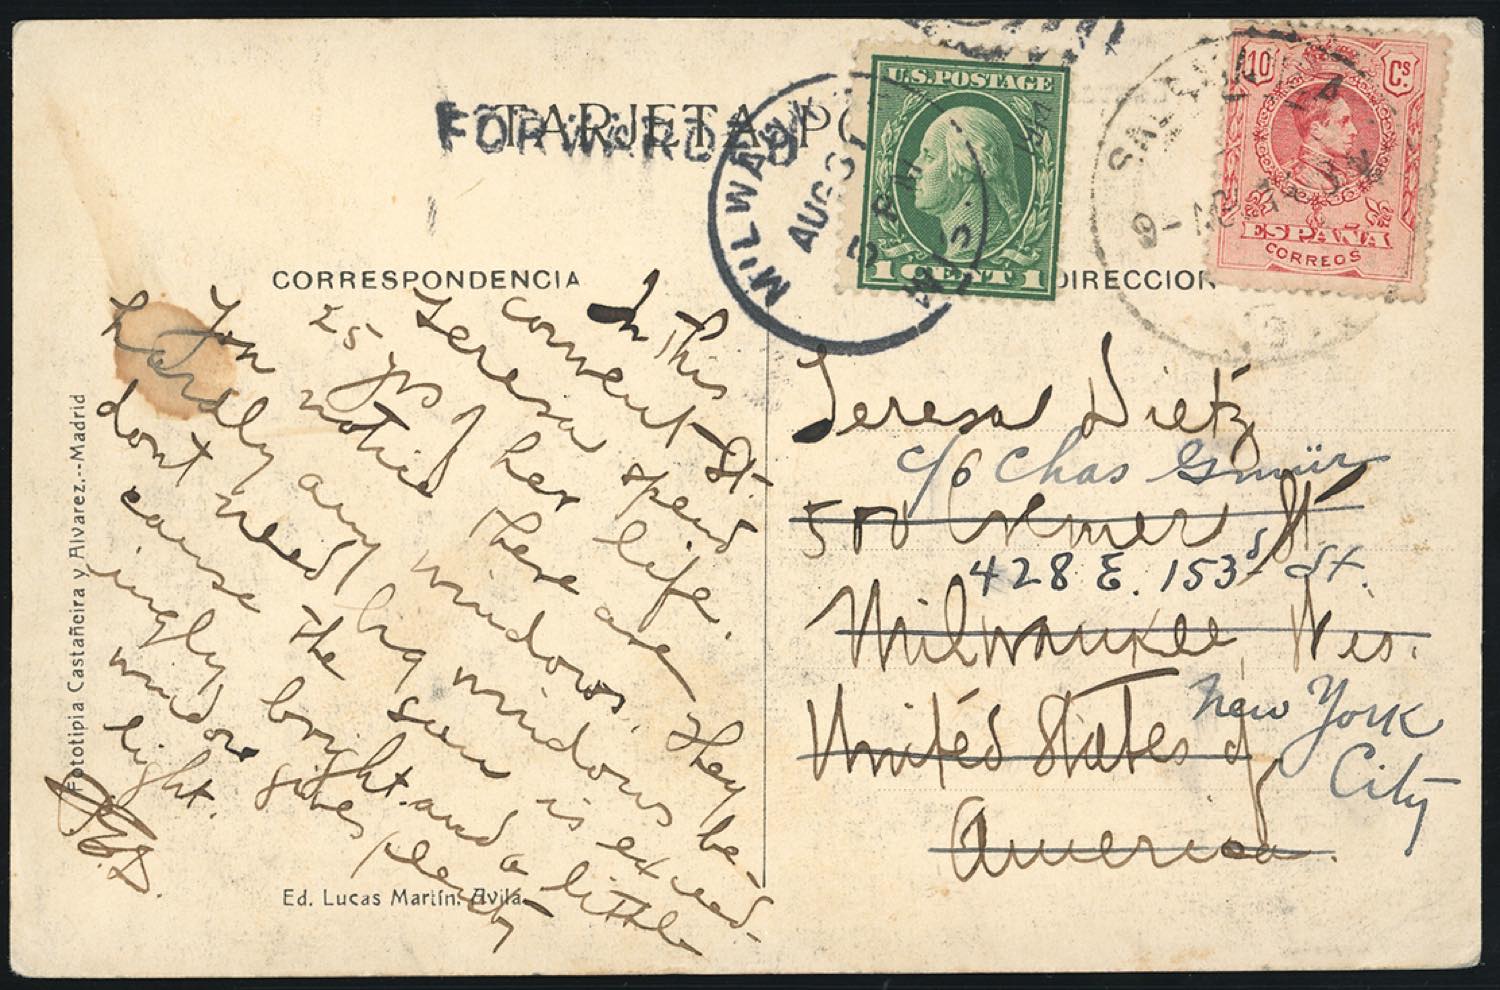 TARJETA PO
FORWARDED
CORRESPONDENCIA
DIRECCION
U.S. POSTAGE
1 CENT 1
10 Cs
ESPAÑA
CORREOS
MILWAUKEE
WIS.
AUG 31
5 PM
In this
convent St.
Teresa spend
25 yrs of her life.
You notice there are
hardly any windows. They
dont need big windows be-
cause the sun is exceed-
ingly bright and a little
window gives plenty
light.
Teresa Dietz
c/o Chas Gmür
500 Cramer St
428 E. 153d St.
Milwaukee, Wis.
United States of
New York
City
America.
Fototipia Castañeira y Alvarez.--Madrid
Ed. Lucas Martín. Avila